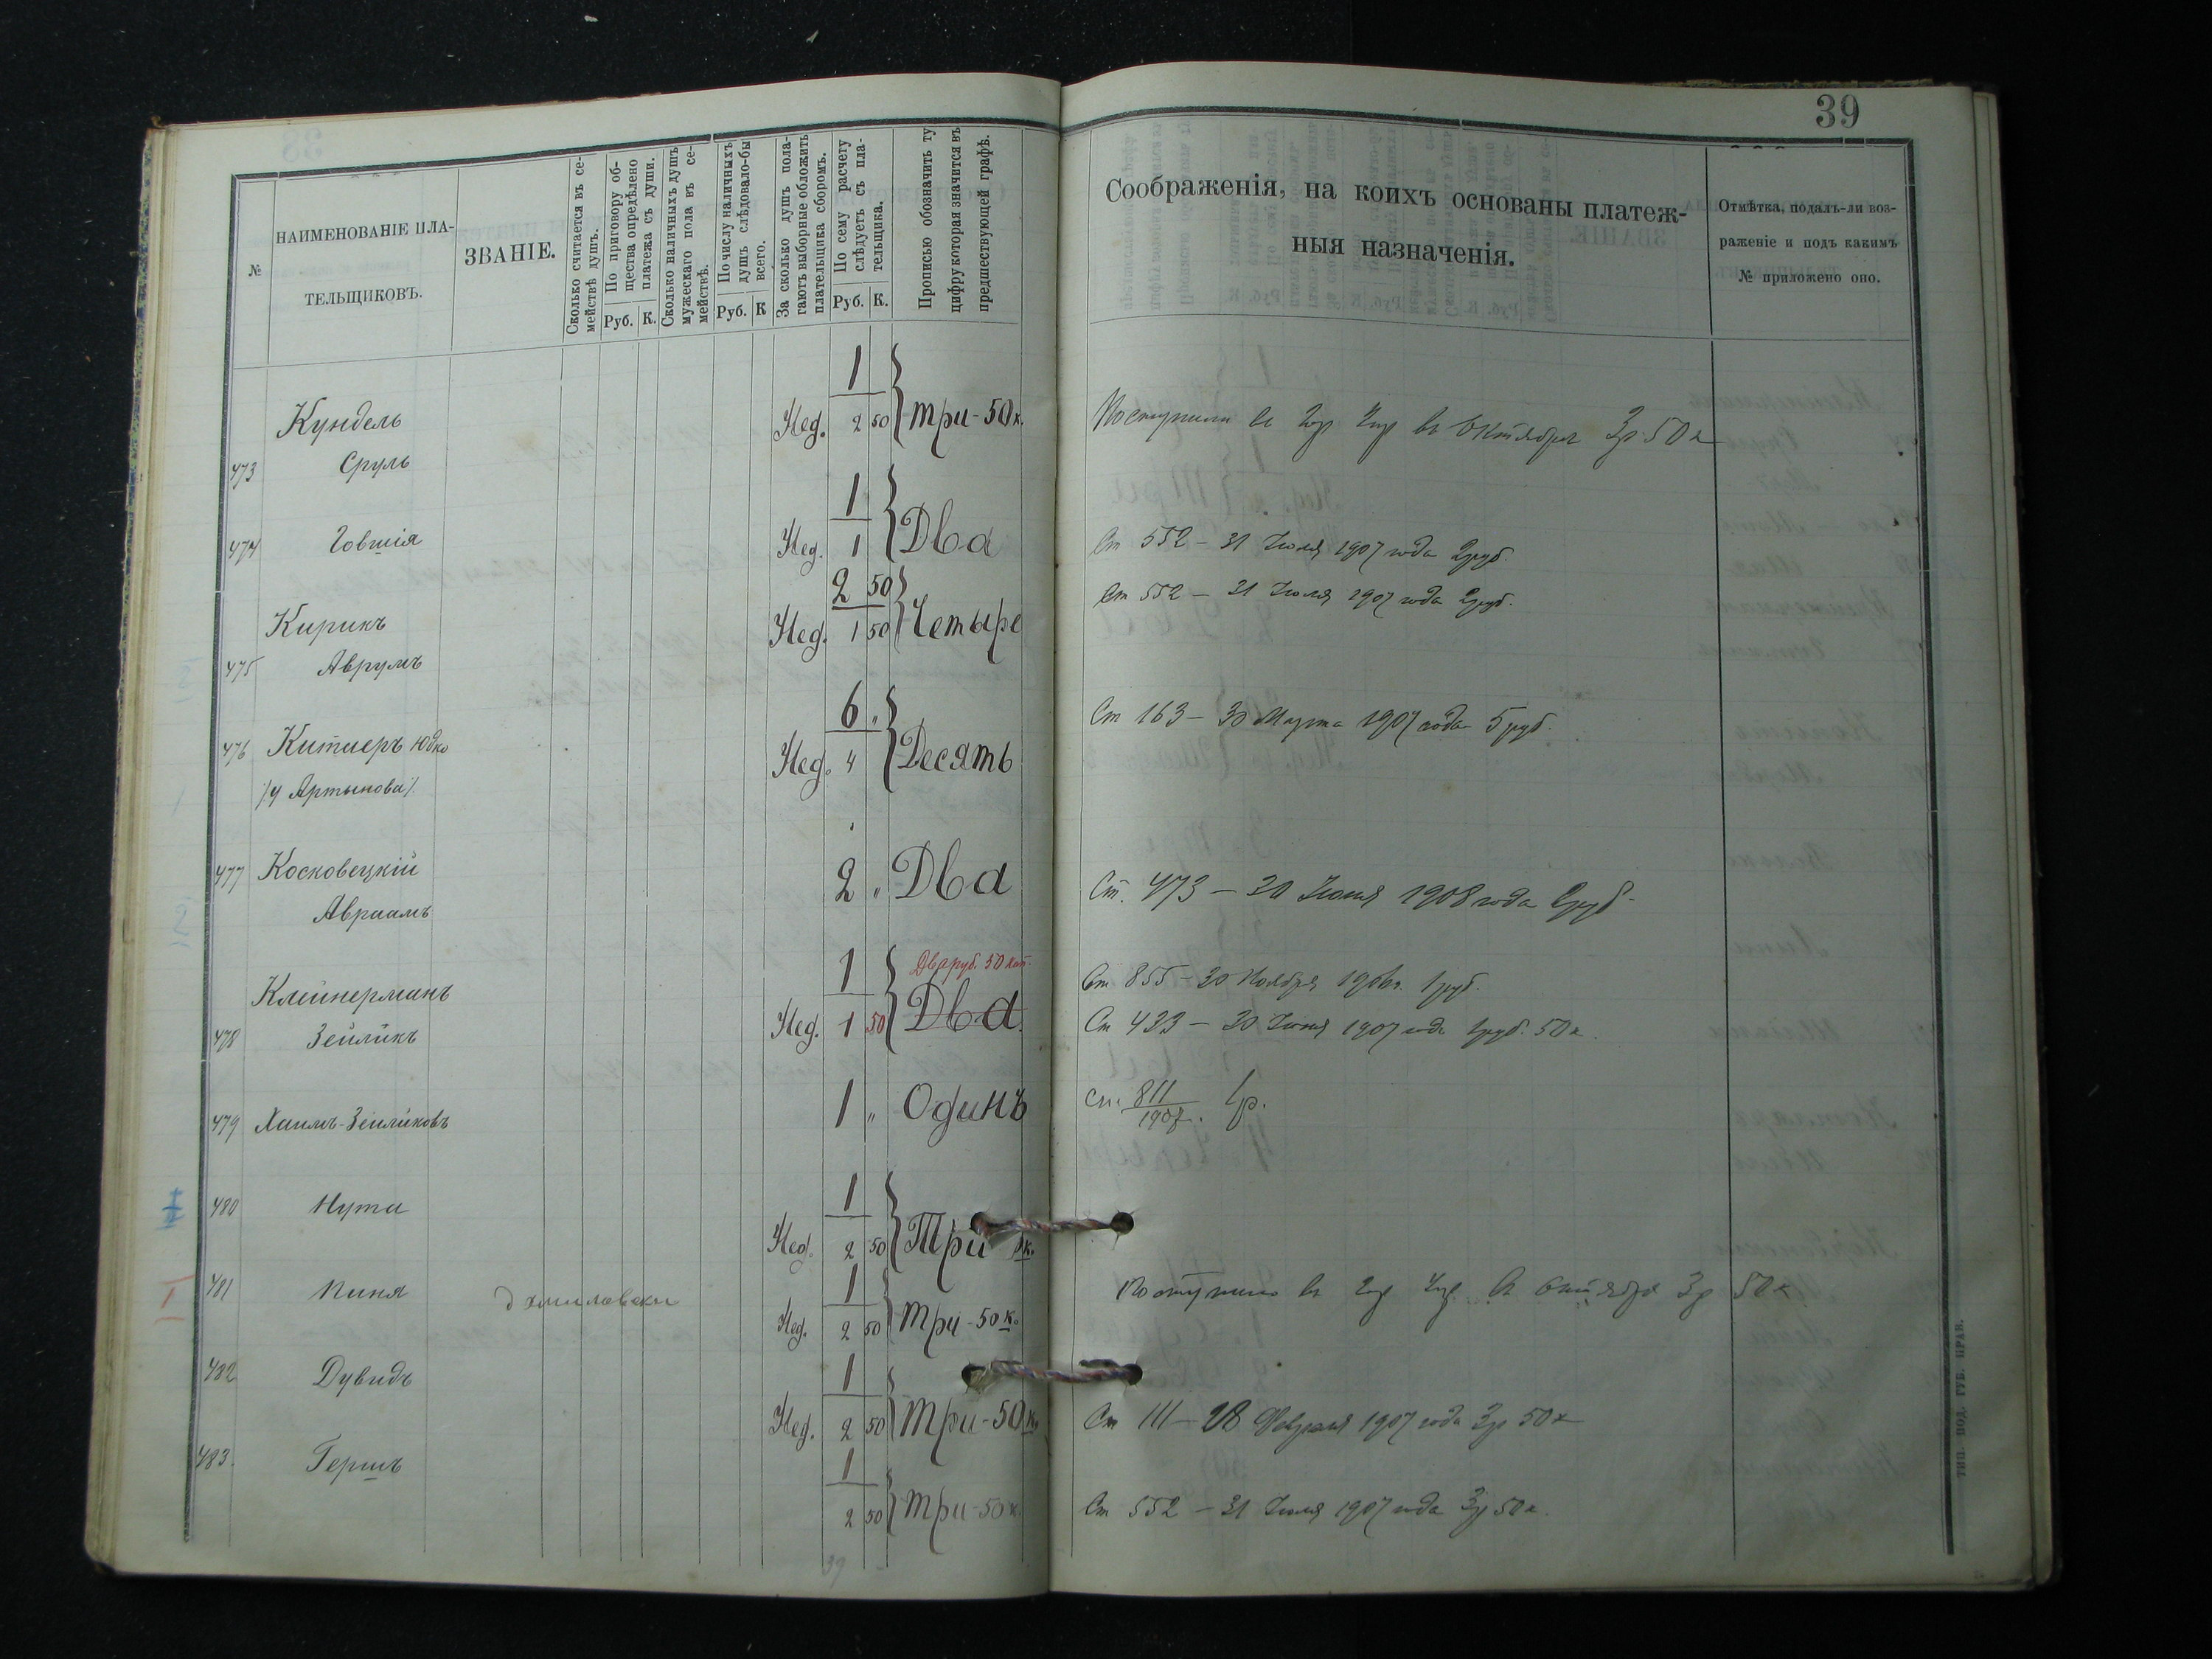 39
№
НАИМЕНОВАНІЕ ПЛА-
ТЕЛЬЩИКОВЪ.
ЗВАНІЕ.
Сколько считается въ се-
мействѣ душъ.
По приговору об-
щества опредѣлено
платежа съ души.
Руб. К.
Сколько наличныхъ душъ
мужескаго пола въ се-
мействѣ.
По числу наличныхъ
душъ слѣдовало-бы
всего.
Руб. К
За сколько душъ пола-
гаютъ выборные обложить
плательщика сборомъ.
По сему расчету
слѣдуетъ съ пла-
тельщика.
Руб. К.
Прописью обозначить ту
цифру которая значится въ
предшествующей графѣ.
Соображенія, на коихъ основаны платеж-
ныя назначенія.
Отмѣтка, подалъ-ли воз-
раженіе и подъ какимъ
№ приложено оно.
1
Кундель Нед. 2 50 Три-50 к. Поступили въ Октября 3р 50 к
473 Сруль
1
474 Іовшія Нед. 1 Два Ст 552 - 31 Іюля 1907 года 2 руб.
2 50
Кирикъ Нед. 1 50 Четыре Ст 552 - 31 Іюля 1907 года 2 руб.
475 Аврумъ
6 „
476 Китнеръ Юдко Нед. 4 Десять Ст 163 - 30 Марта 1907 года 5 руб.
/у Артынова/
477 Косковецкій 2 „ Два Ст. 473 - 30 Іюня 1908 года 2 руб.
Авраамъ
1 Два руб. 50 коп.
Клейнерманъ Ст 855 - 30 Ноября 1906 г. 1 руб.
478 Зейликъ Нед. 1 50 Два Ст 423 - 30 Іюня 1907 года 1 руб. 50 к.
479 Хаимъ-Зейликовъ 1 „ Одинъ Ст. 811/1907 1 р.
480 Нута 1
Нед. 2 50 Три к.
481 Пиня 1
Нед. 2 50 Три-50 к. Поступило въ Октября 3р 50 к
482 Дувидъ 1
Нед. 2 50 Три-50 к. Ст 111 - 28 Февраля 1907 года 3р 50 к
483 Гершъ 1
2 50 Три-50 к. Ст 552 - 31 Іюля 1907 года 3р 50 к.
39
ТИП. ПОД. ГУБ. ПРАВ.